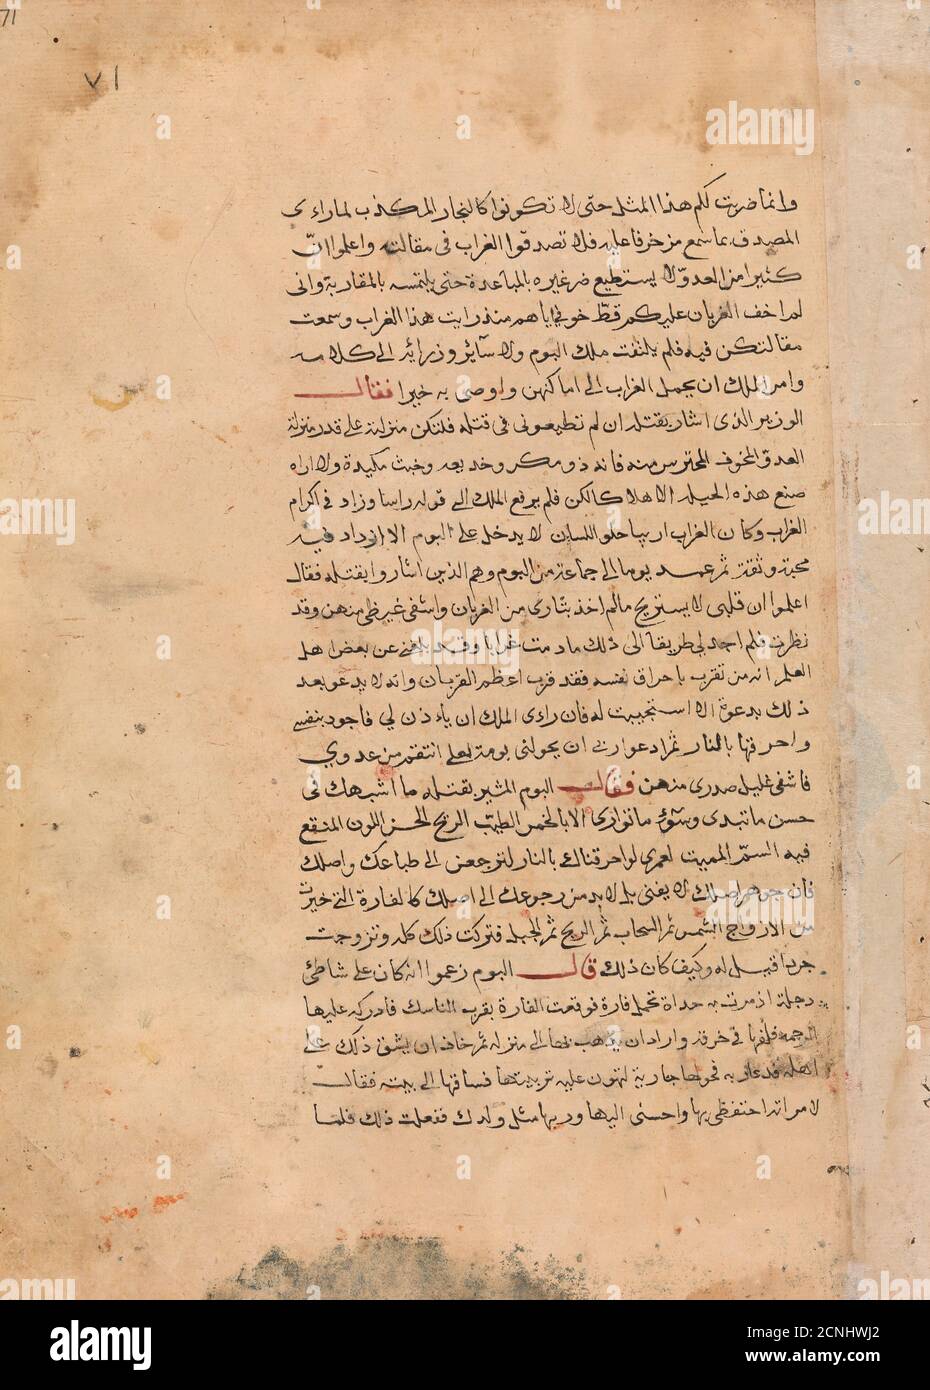 71
٧١
وانما ضربت لكم هذا المثل حتى لا تكونوا كالنجار المكذب لما راءى
المصدق بما سمع من خرفا عليه فلا تصدقوا الغراب فى مقالته واعلموا انّ
كثيرا من العدوّ لا يستطيع ضر غيره بالمباعدة حتى يلتمسه بالمقاربة وانى
لم اخف الغربان عليكم قطّ خوفي اياهم منذ رايت هذا الغراب وسمعت
مقالتكن فيه فلم يلتفت ملك البوم ولا سآئر وزرائه الى كلامه
وامر الملك ان يحمل الغراب الى اماكنهن واوصى به خيرا فقال
الوزير الذى اشار بقتله ان لم تطيعونى فى قتله فلتكن منزلته على قدر منزلة
العدو المخوف المحترس منه فانه ذو مكر وخديعه وخبث مكيدة ولا اراه
صنع هذه الحيله الا هلاكا لكن فلم يرفع الملك الى قوله راسا وزاد فى اكرام
الغراب وكان الغراب اريبا حلو اللسان لا يدخل على البوم الا ازداد فيه
محبة وثقة ثم عمد يوما الى جماعة من البوم وهم الذين اشاروا بقتله فقال
اعلموا ان قلبى لا يستريح ما لم اخذ بثارى من الغربان واشفى غيظى منهن وقد
نظرت فلم اجد لى طريقا الى ذلك ما دمت غرابا وقد بلغنى عن بعض اهل
العلم انه من تقرب باحراق نفسه فقد قرب اعظم القربان وانه لا يدعو بعد
ذلك بدعوة الا استجيبت له فان راءى الملك ان ياءذن لي فاجود بنفسى
واحرقها بالنار ثم ادعوا ربى ان يحولنى بومة لعلى انتقم من عدوي
فاشفى غليل صدرى منهن فقال البوم المشير بقتله ما اشبهك فى
حسن ما تبدى وسوء ما توارى الا بالخمر الطيب الريح الحسن اللون المنقع
فيه السمّ المميت لعمرى لو احرقناك بالنار لترجعن الى طباعك واصلك
فان جوهر اصلك لا يفنى بل لا بد من رجوعك الى اصلك كالفارة التى خيرت
من الازواج الشمس ثم السحاب ثم الريح ثم الجبل فتركت ذلك كله وتزوجت
جرذا قيل له وكيف كان ذلك قال البوم زعموا انه كان على شاطئ
دجلة اذ مرت به حداة تحمل فارة فوقعت الفارة بقرب الناسك فادركه عليها
الرحمة فلفها فى خرقه واراد ان يذهب بها الى منزله ثم خاف ان يشق ذلك على
اهله فدعا ربه فحولها جارية لتهون عليه تربيتها فساقها الى بيته فقال
لامراته احتفظى بها واحسنى اليها وربيها مثل ولدك ففعلت ذلك فلمّا
alamy
alamy
alamy
alamy
alamy
Image ID: 2CNHWJ2
www.alamy.com